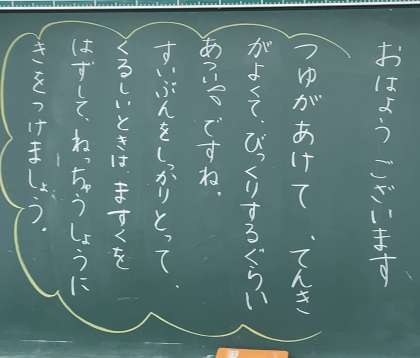 おはようございます
つゆがあけて、てんき
がよくて、びっくりするぐらい
あついですね。
すいぶんをしっかりとって、
くるしいときは、ますくを
はずして、ねっちゅうしょうに
きをつけましょう。